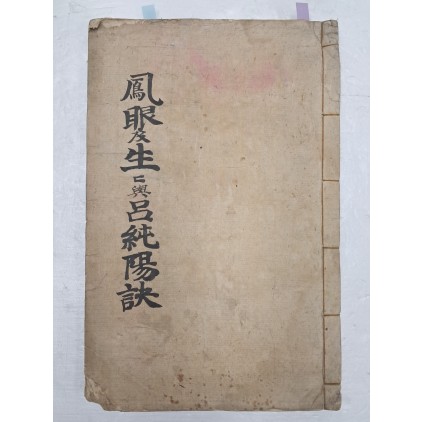 鳳眼及生㔾與呂純陽訣